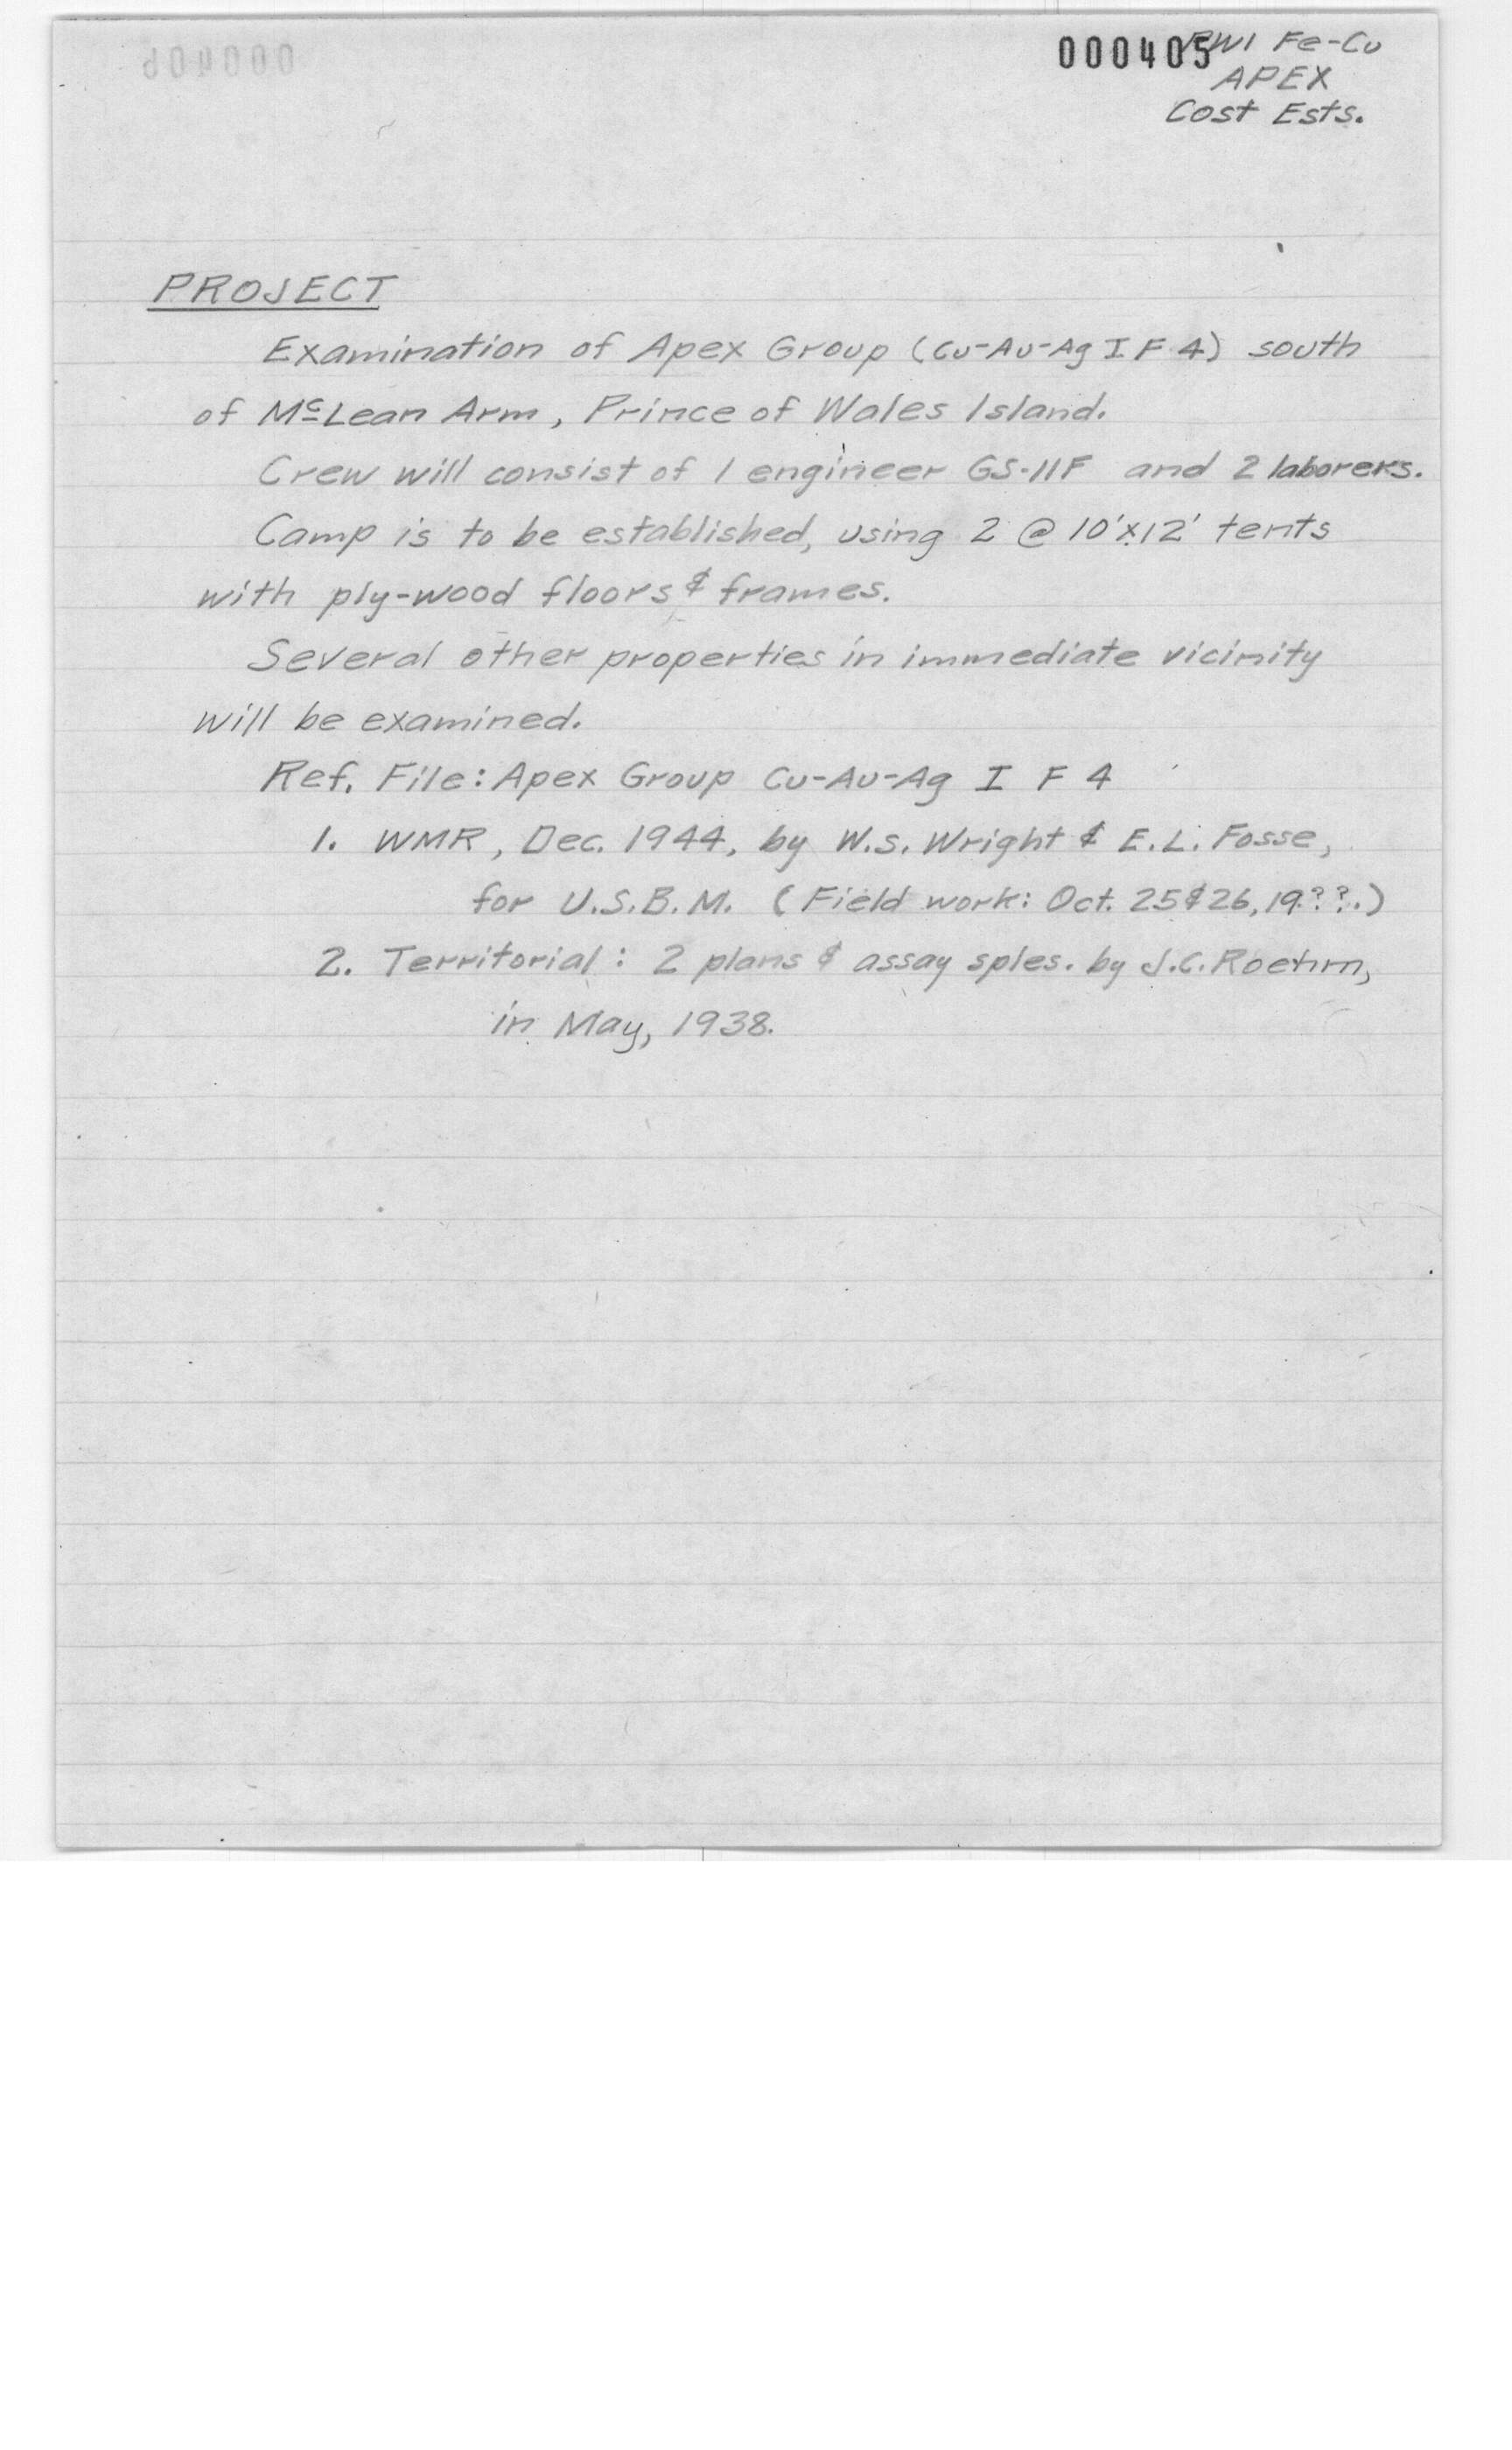 000405 PWI Fe-Cu
APEX
Cost Ests.
PROJECT
Examination of Apex Group (Cu-Au-Ag I F 4) south
of McLean Arm, Prince of Wales Island.
Crew will consist of 1 engineer GS-11F and 2 laborers.
Camp is to be established, using 2 @ 10'x12' tents
with ply-wood floors & frames.
Several other properties in immediate vicinity
will be examined.
Ref. File: Apex Group Cu-Au-Ag I F 4
1. WMR, Dec. 1944, by W.S. Wright & E.L. Fosse,
for U.S.B.M. (Field work: Oct. 25 & 26, 19??.)
2. Territorial: 2 plans & assay sples. by J.C. Roehm,
in May, 1938.